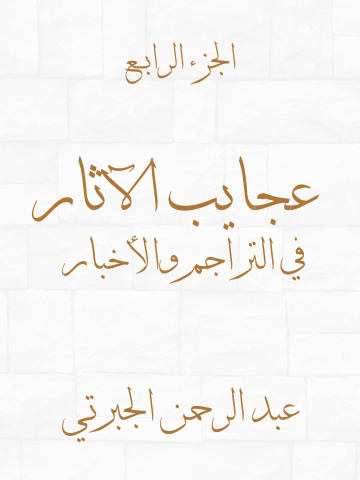 الجزء الرابع
عجايب الآثار
في التراجم والأخبار
عبد الرحمن الجبرتي